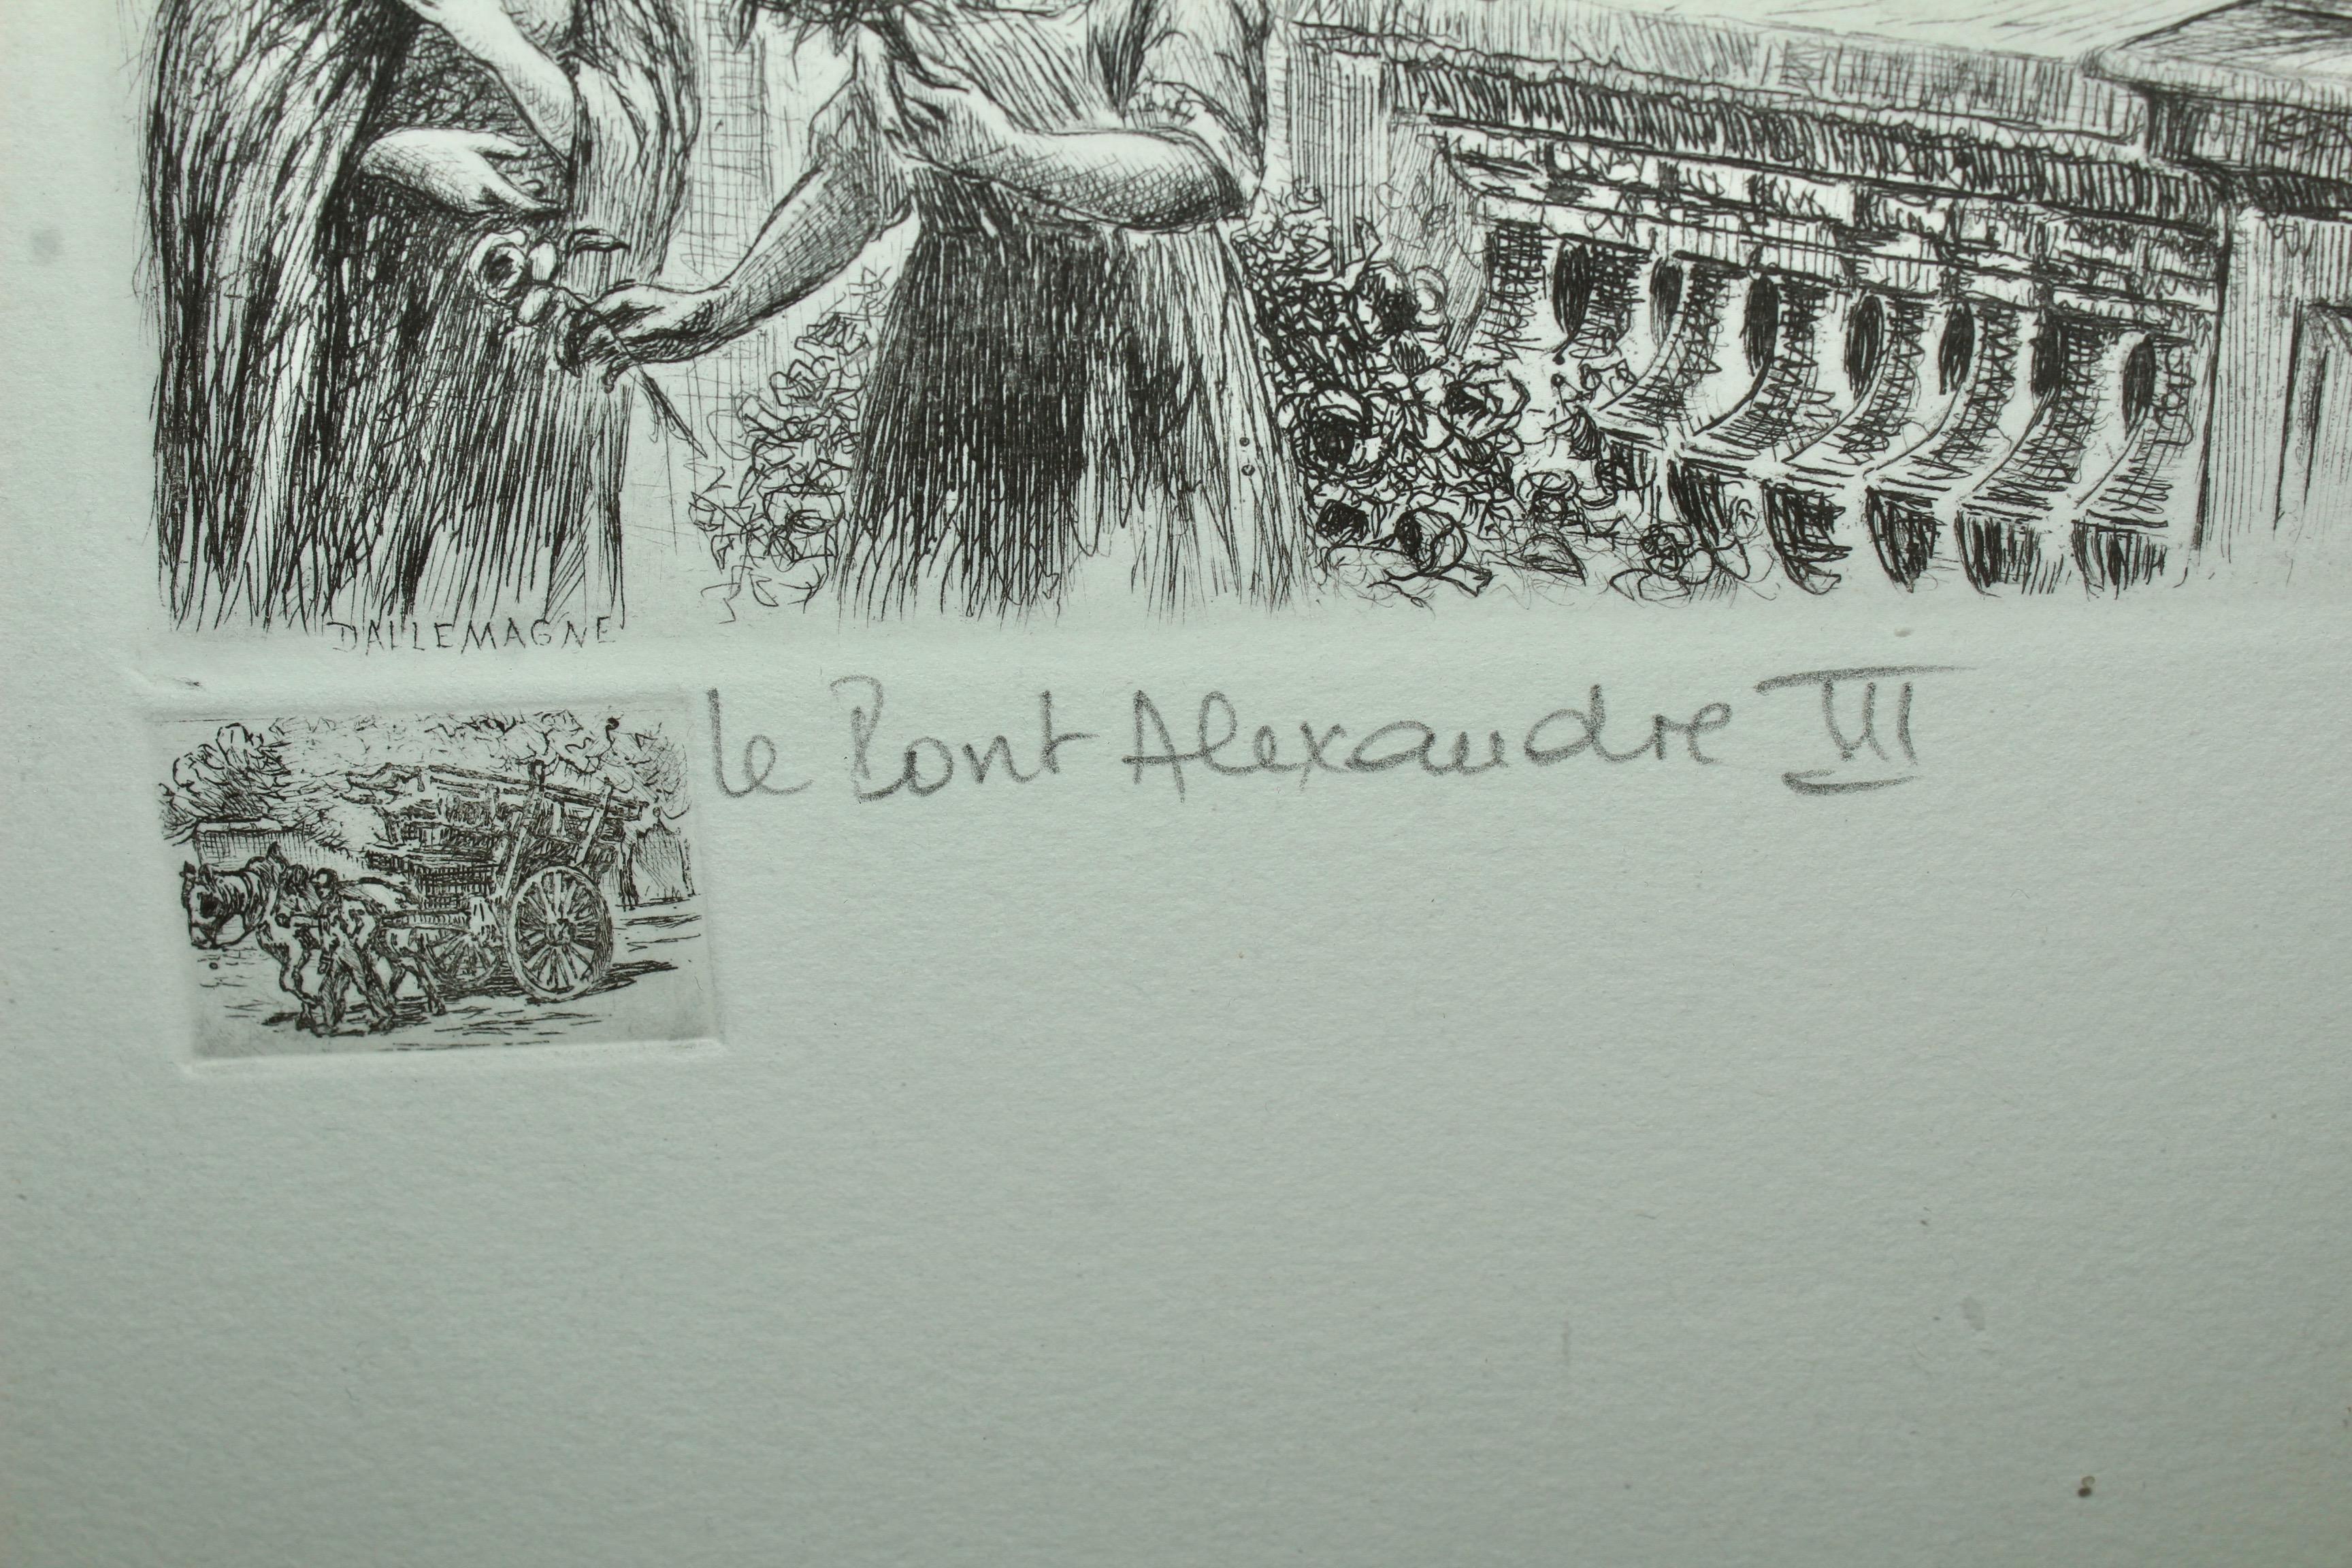 DALLEMAGNE
le Pont Alexandre III